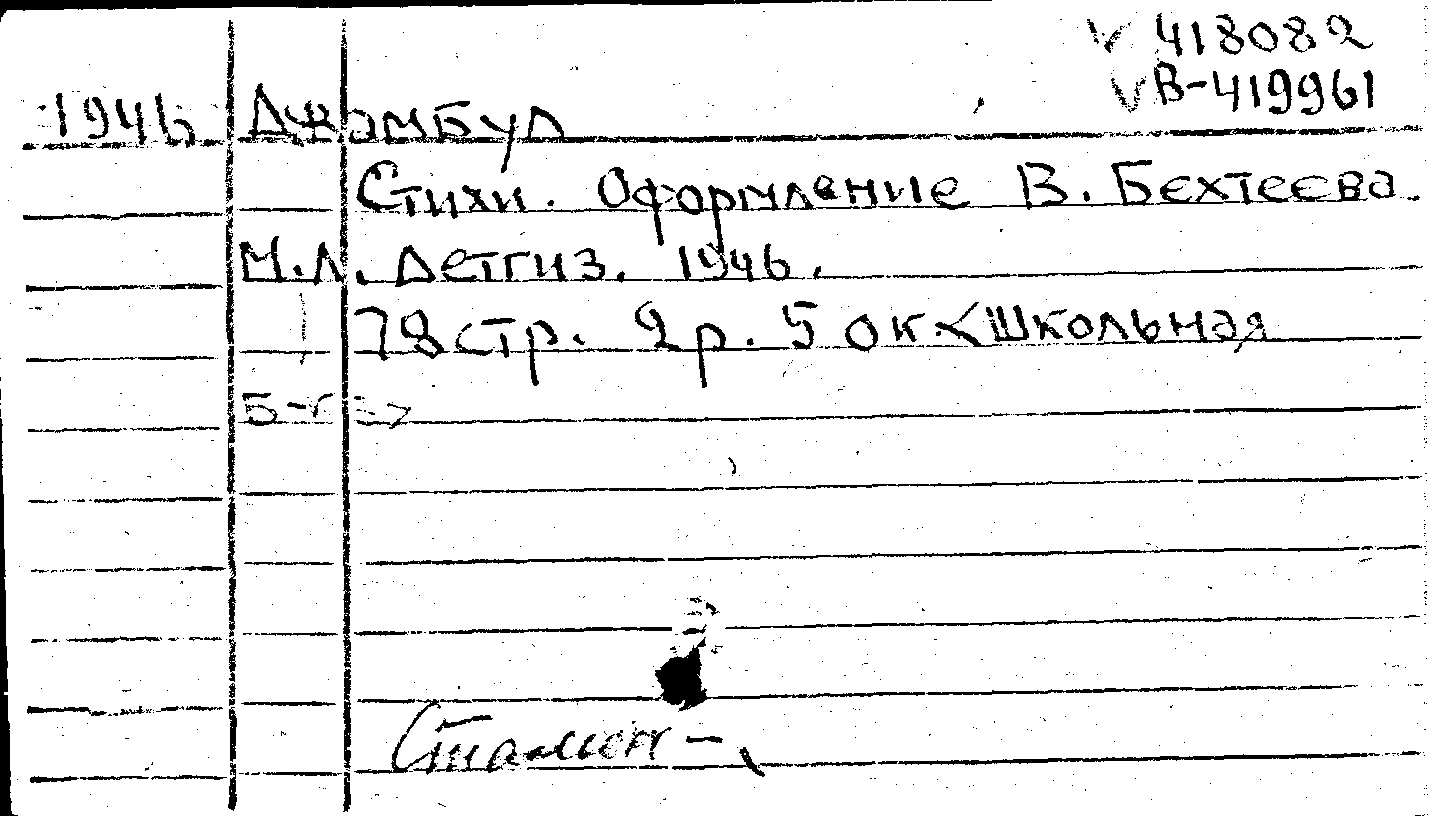 418082
В-419961
1946 Джамбул
Стихи. Оформление В. Бехтеева.
М.Л. Детгиз. 1946.
78 стр. 2 р. 50 к. <Школьная
Б-ка>